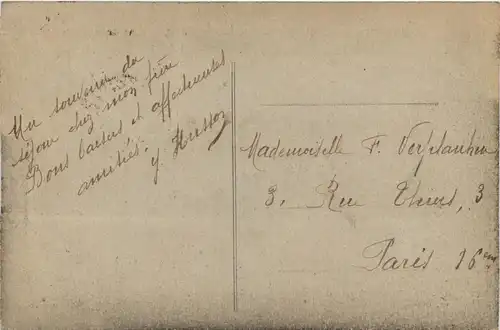 Un souvenir du
séjour chez mon frère
Bons baisers et affectueuses
amitiés.
Y Husson
Mademoiselle F.
3, Rue Thiers, 3
Paris 16eme